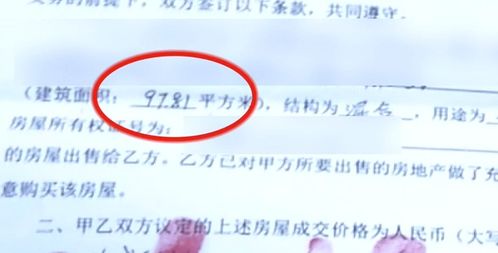 义务的前提下，双方签订以下条款，共同遵守。
（建筑面积：97.81平方米），结构为混合，用途为
房屋所有权证号为：
的房屋出售给乙方。乙方已对甲方所要出售的房地产做了充
意购买该房屋。
二、甲乙双方议定的上述房屋成交价格为人民币（大写